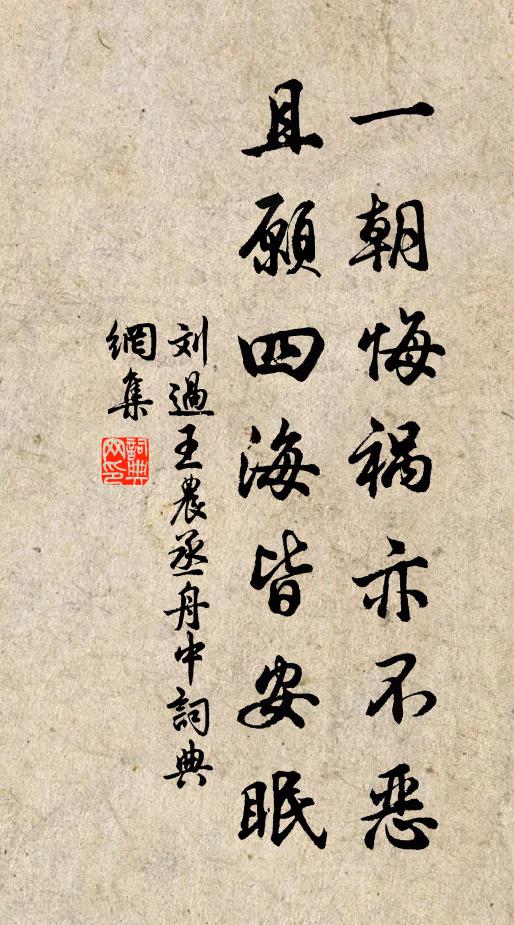 一朝悔祸亦不恶
且愿四海皆安眠
刘過王農丞舟中詞典
網集
詞典网印